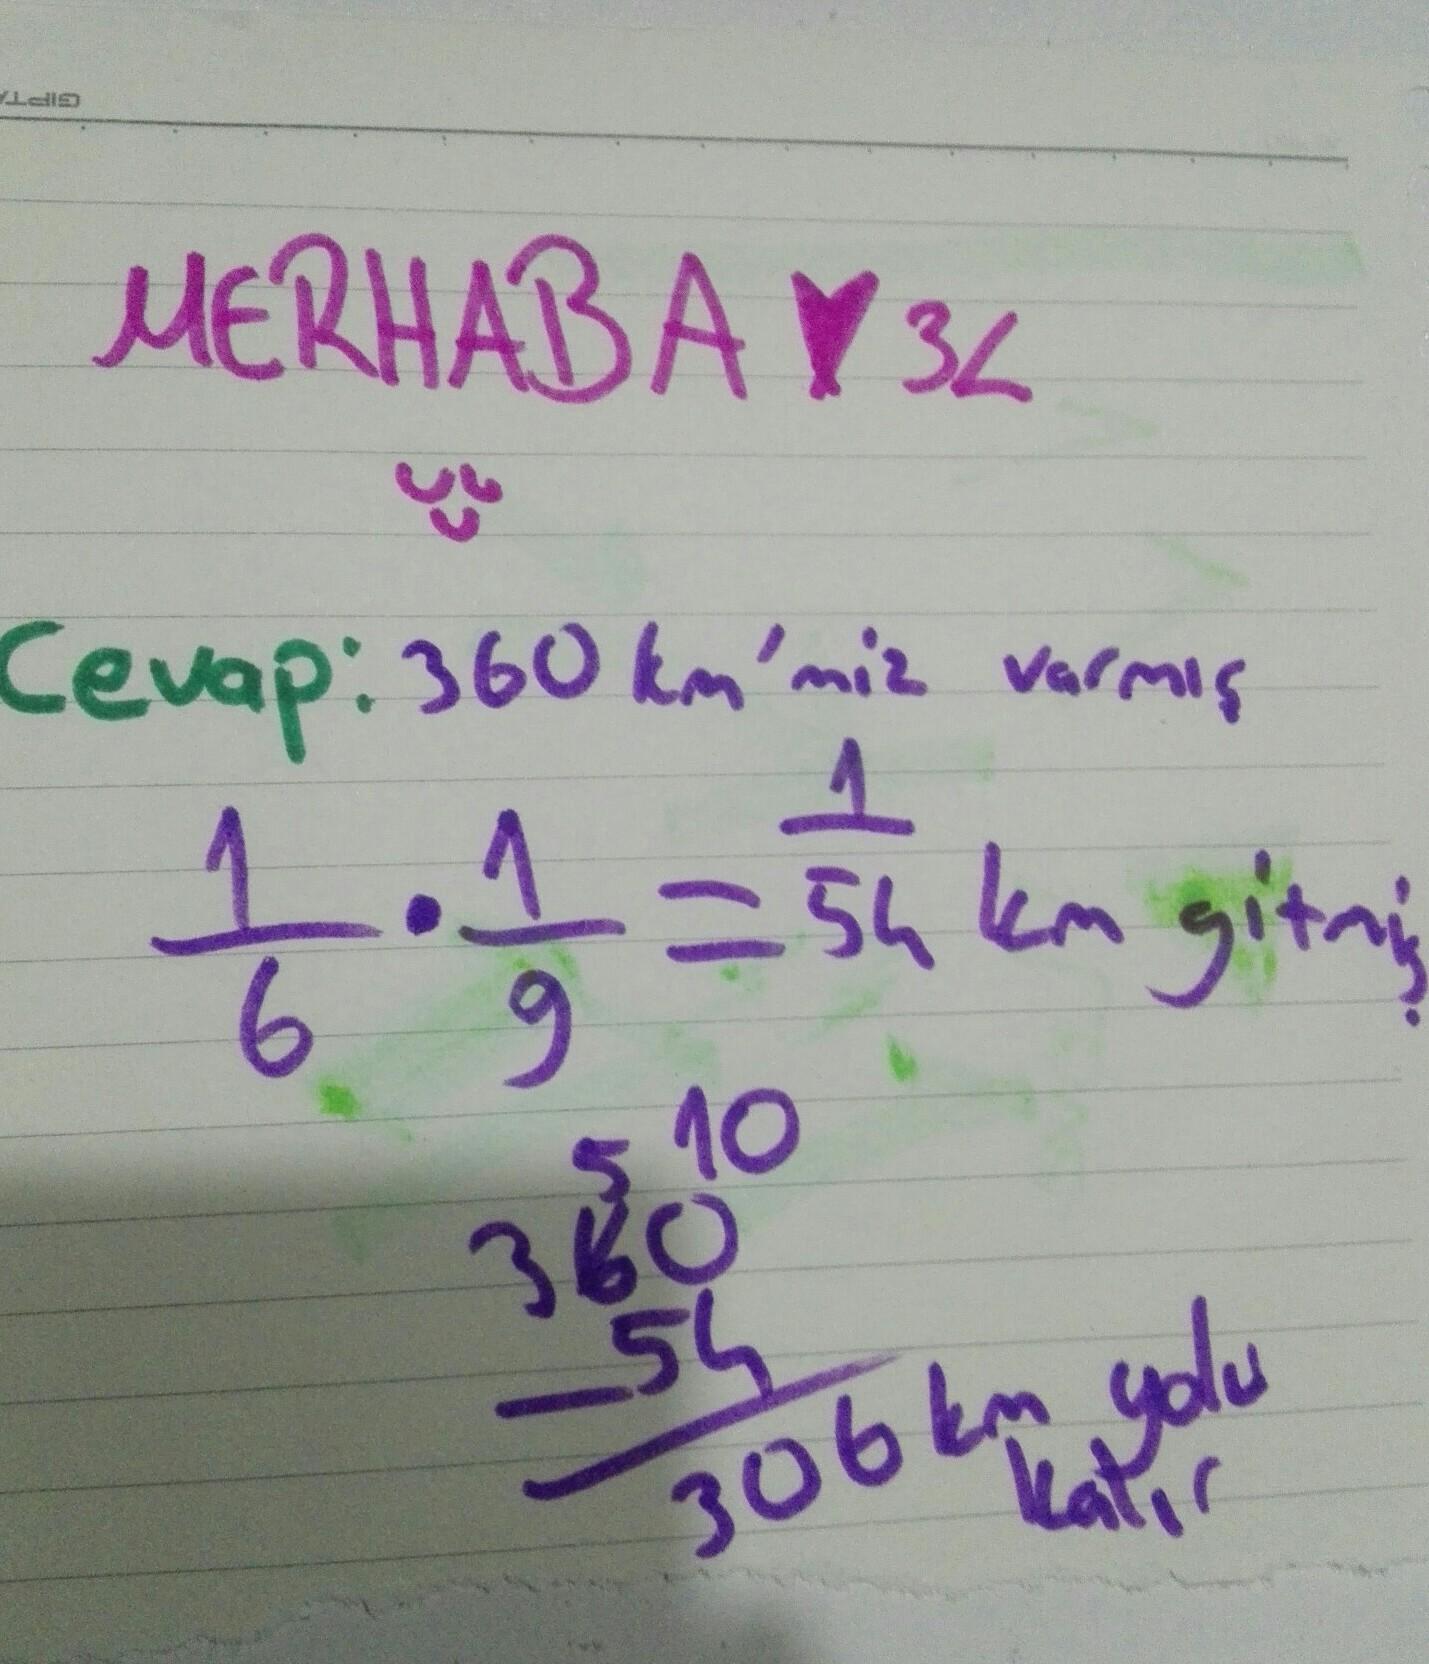 GIPTA
MERHABA ♥ 34
Cevap: 360 km'miz varmış
1/6 . 1/9 = 1/54 km gitmiş
5 10
360
- 54
306 km yolu
katır